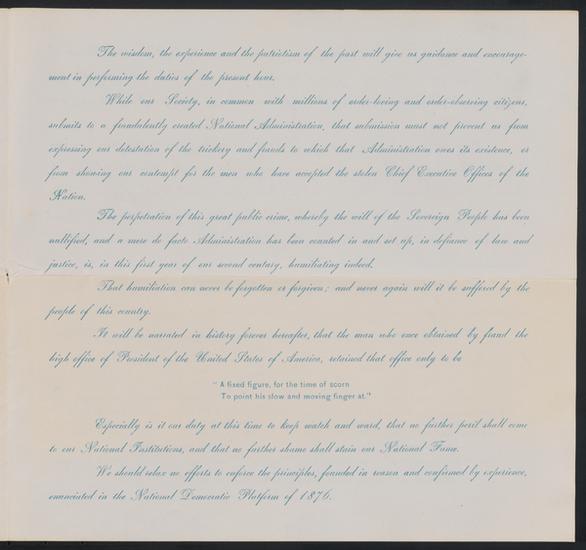 The wisdom, the experience and the patriotism of the past will give us guidance and encourage-
ment in performing the duties of the present hour.
While our Society, in common with millions of order-loving and order-observing citizens,
submits to a fraudulently created National Administration, that submission must not prevent us from
expressing our detestation of the trickery and frauds to which that Administration owes its existence, or
from showing our contempt for the men who have accepted the stolen Chief Executive Offices of the
Nation.
The perpetration of this great public crime, whereby the will of the Sovereign People has been
nullified, and a mere de facto Administration has been counted in and set up, in defiance of law and
justice, is, in this first year of our second century, humiliating indeed.
That humiliation can never be forgotten or forgiven; and never again will it be suffered by the
people of this country.
It will be narrated in history forever hereafter, that the man who once obtained by fraud the
high office of President of the United States of America, retained that office only to be
"A fixed figure, for the time of scorn
To point his slow and moving finger at."
Especially is it our duty at this time to keep watch and ward, that no further peril shall come
to our National Institutions, and that no further shame shall stain our National Fame.
We should relax no efforts to enforce the principles, founded in reason and confirmed by experience,
enunciated in the National Democratic Platform of 1876.